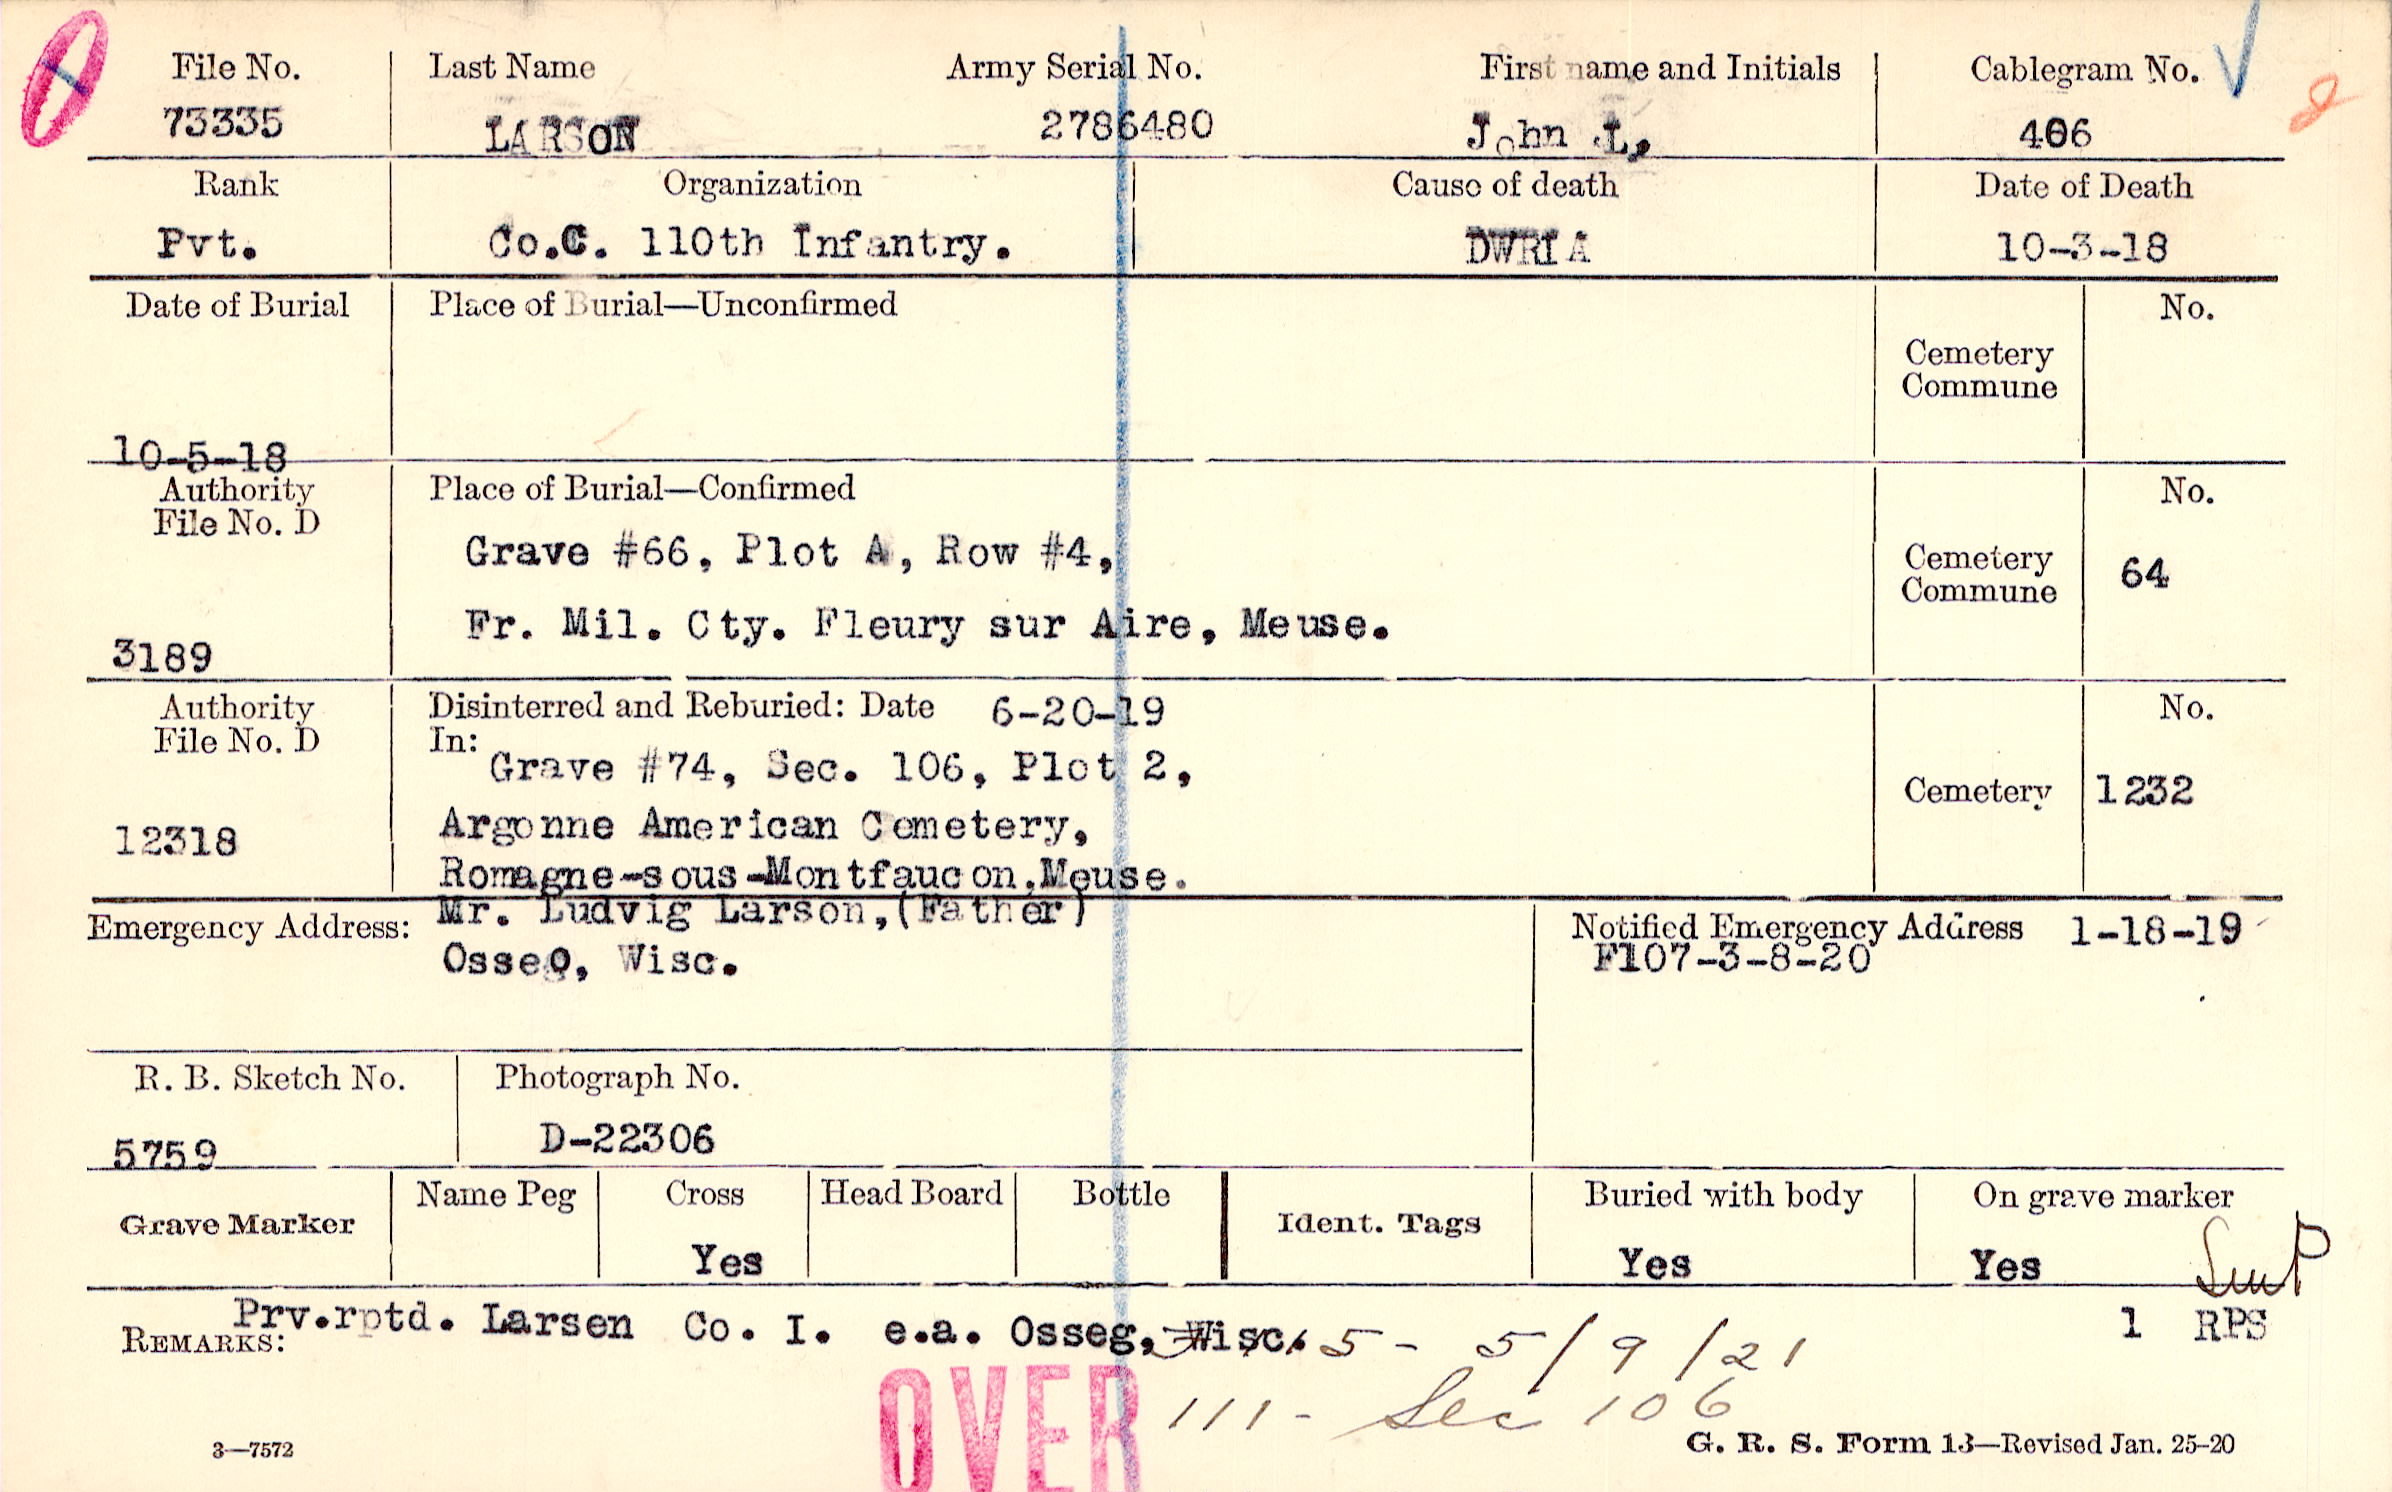 File No. Last Name Army Serial No. First name and Initials Cablegram No.
73335 LARSON 2786480 John L, 406
Rank Organization Cause of death Date of Death
Pvt. Co.C. 110th Infantry. DWRIA 10-3-18
Date of Burial Place of Burial—Unconfirmed No.
Cemetery
Commune
10-5-18
Authority Place of Burial—Confirmed No.
File No. D
Grave #66, Plot A, Row #4,
Cemetery
Commune 64
Fr. Mil. Cty. Fleury sur Aire, Meuse.
3189
Authority Disinterred and Reburied: Date 6-20-19 No.
File No. D In:
Grave #74, Sec. 106, Plot 2,
Cemetery 1232
Argonne American Cemetery,
12318
Romagne-sous-Montfaucon,Meuse.
Emergency Address: Mr. Ludvig Larson,(Father) Notified Emergency Address 1-18-19
Osseo, Wisc. F107-3-8-20
R. B. Sketch No. Photograph No.
5759 D-22306
Grave Marker Name Peg Cross Head Board Bottle Ident. Tags Buried with body On grave marker
Yes Yes Yes
REMARKS: Prv.rptd. Larsen Co. I. e.a. Osseg, Wisc. 5 - 5/9/21 1 RPS
OVER 111 - Sec 106
3—7572 G. R. S. Form 13—Revised Jan. 25-20